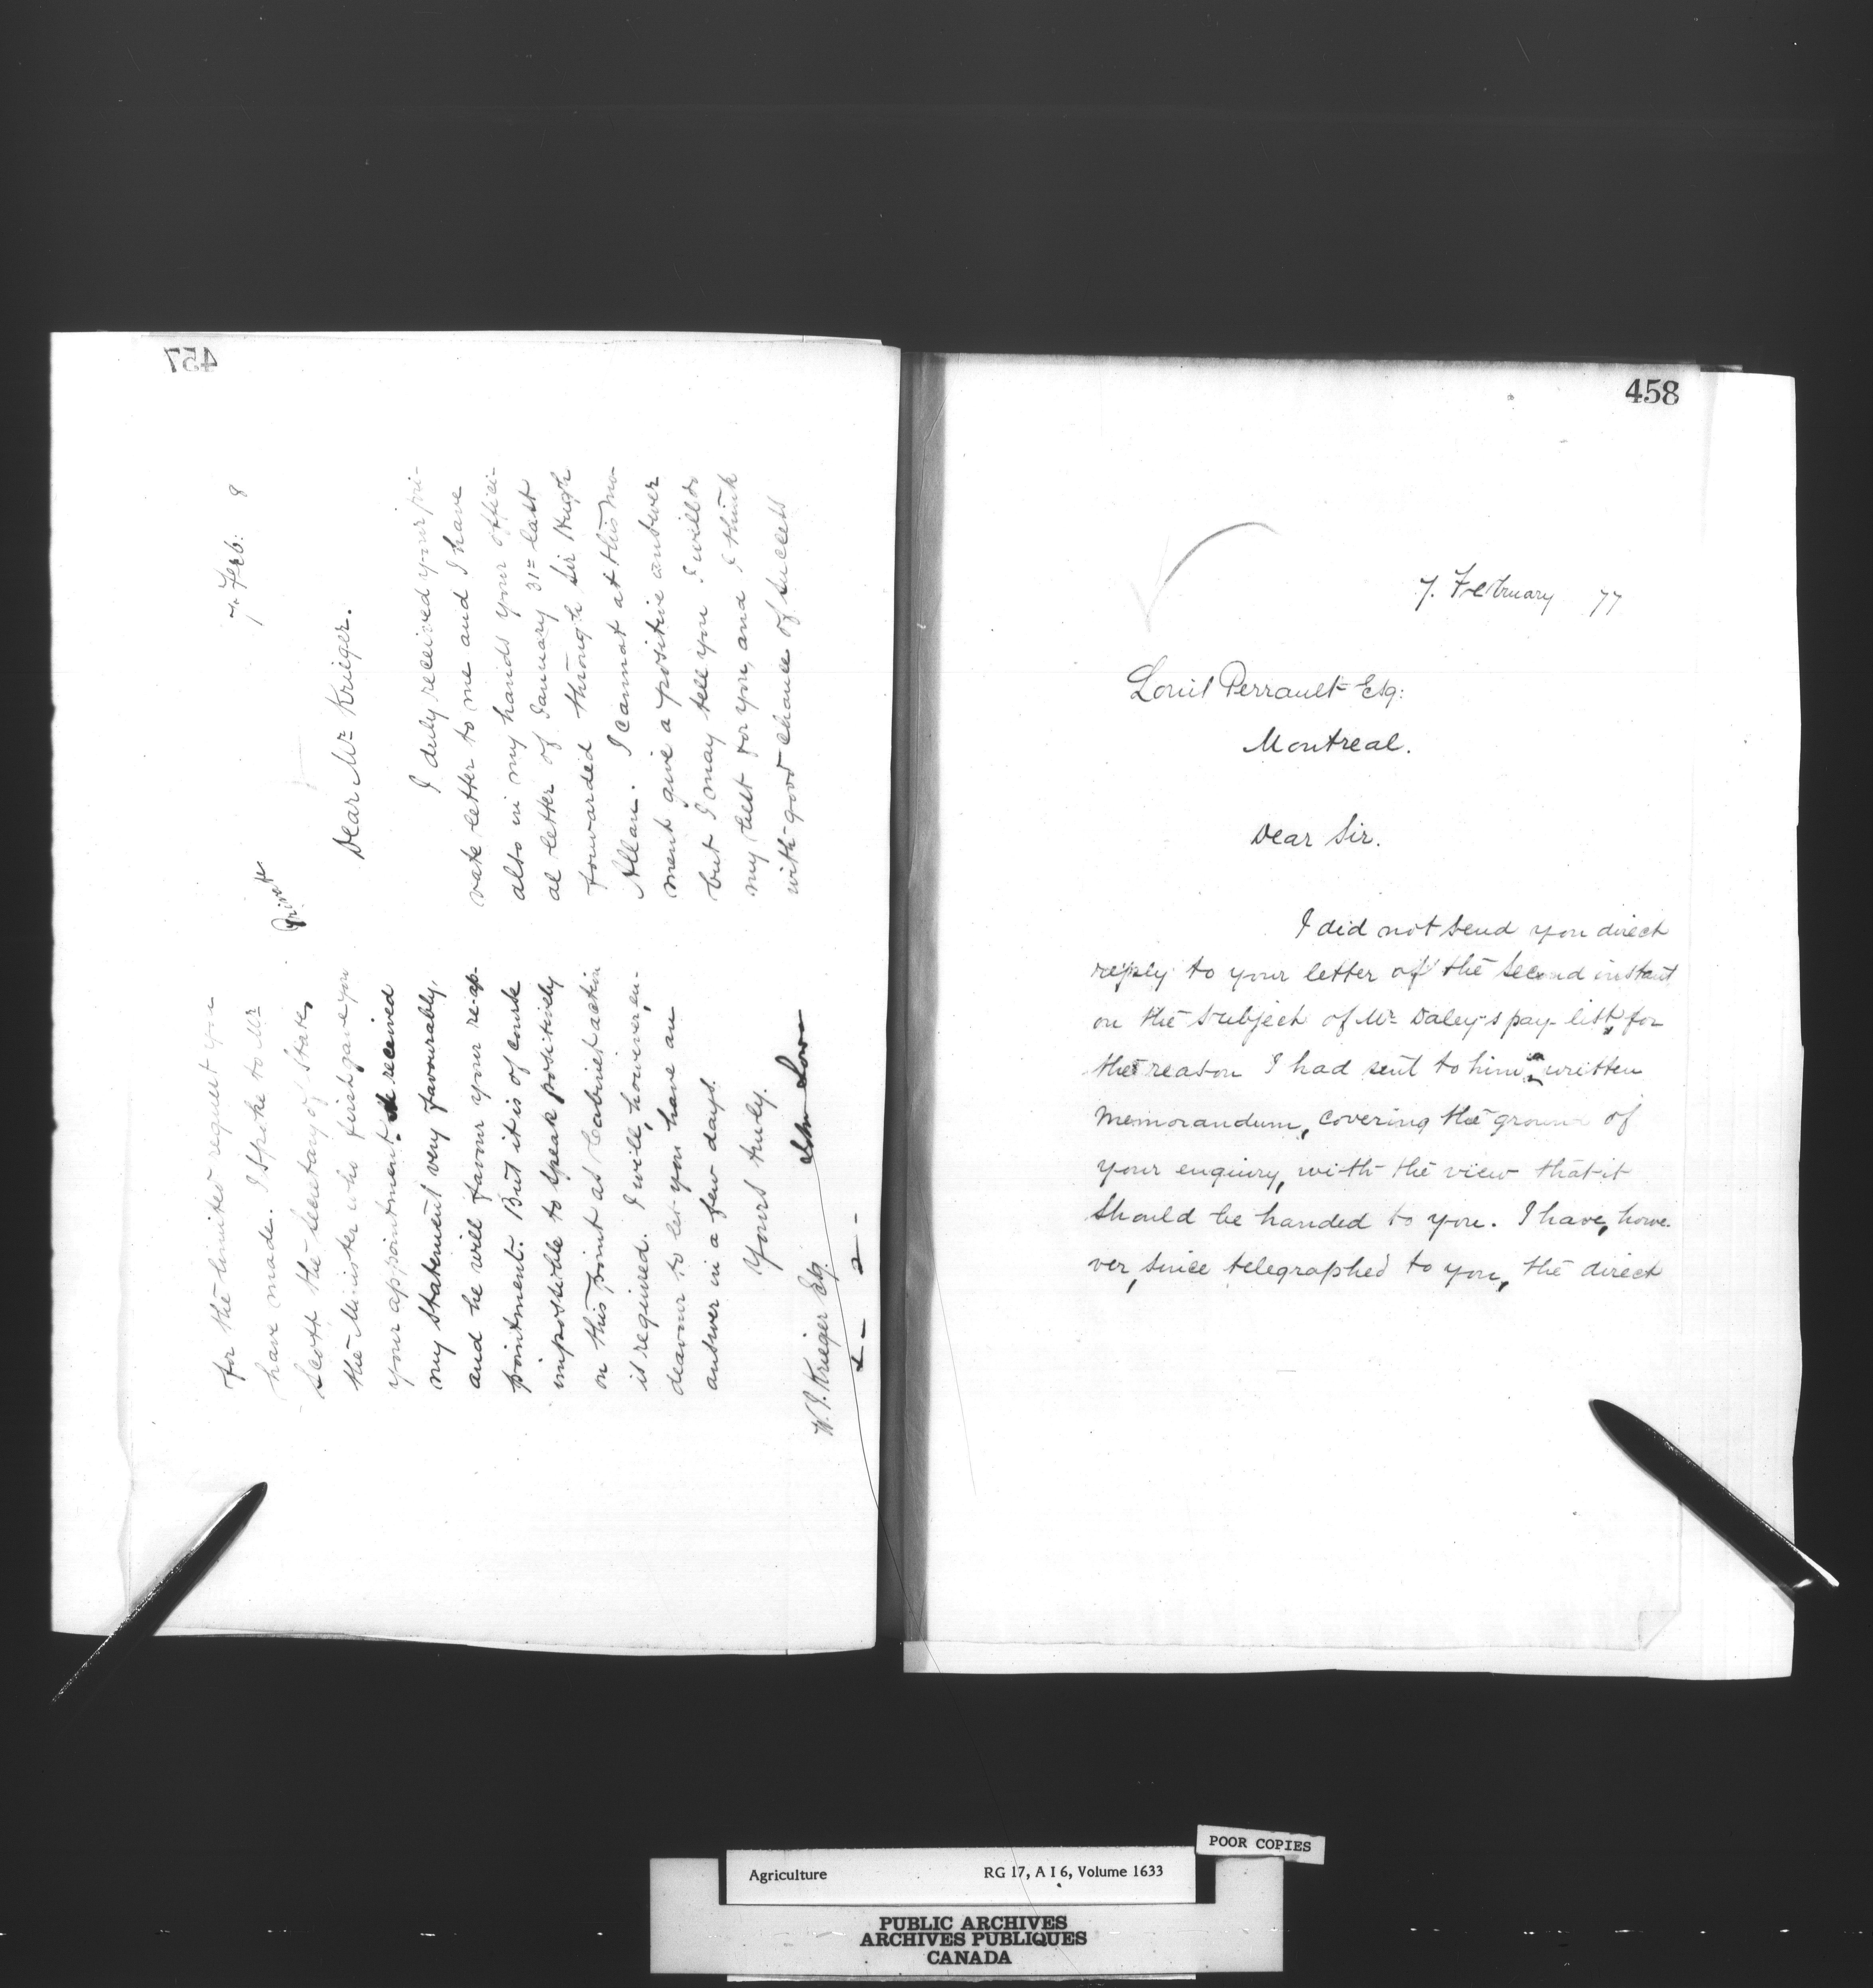 457
7. Feb: 8
Private
Dear Mr Krieger.
I duly received your pri-
vate letter to me and I have
also in my hands your offici-
al letter of January 31= last
forwarded through Sir Hugh
Allan. I cannot at this mo-
ment give a positive answer
but I may tell you I will do
my best for you, and I think
with good chance of success
for the limited request you
have made. I spoke to Mr
Scott the Secretary of State,
the Minister who first gave you
your appointment. He received
my statement very favourably,
and he will favour your re-ap-
pointment. But it is of course
impossible to speak positively
on this point as Cabinet action
is required. I will, however, en-
deavour to let you have an
answer in a few days.
Yours truly.
John Lowe
W. J. Krieger Esq.
458
7. February 77
Louis Perrault Esq:
Montreal.
Dear Sir.
I did not send you direct
reply to your letter of the second instant
on the subject of Mr Daley's pay-list, for
the reason I had sent to him a written
memorandum, covering the ground of
your enquiry, with the view that it
should be handed to you. I have, howe-
ver, since telegraphed to you, the direct
POOR COPIES
Agriculture RG 17, A I 6, Volume 1633
PUBLIC ARCHIVES
ARCHIVES PUBLIQUES
CANADA